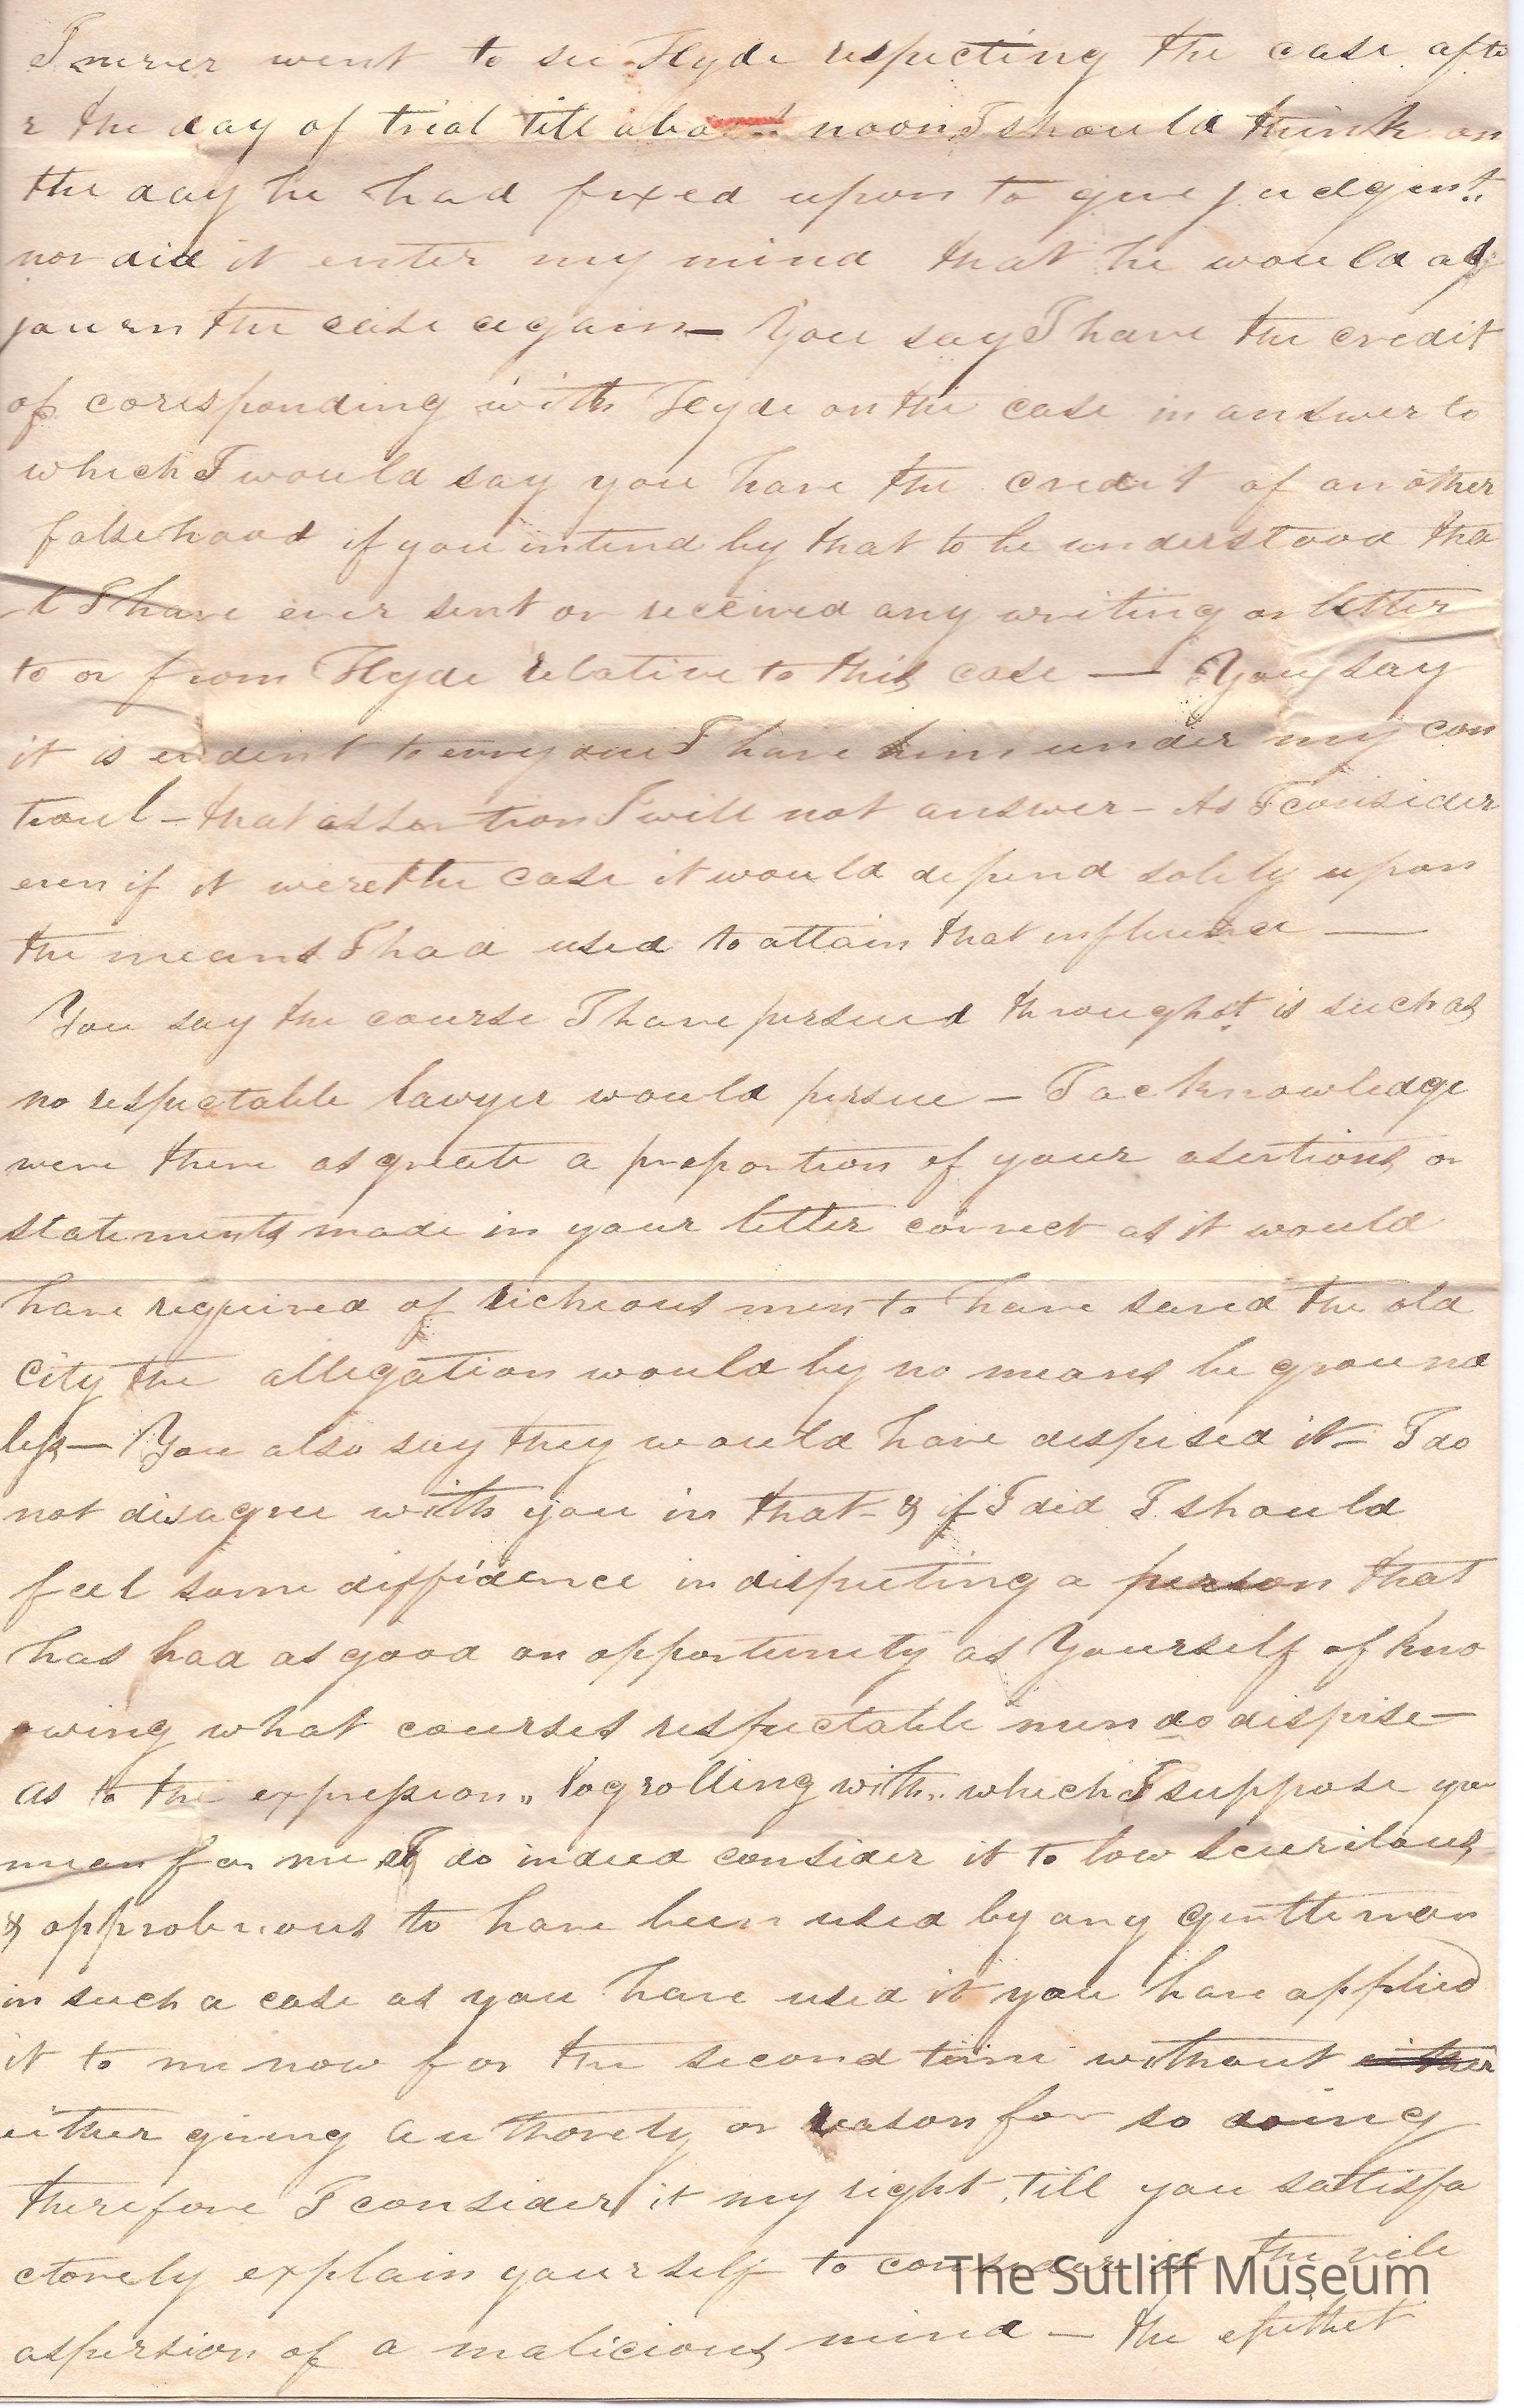 I never went to see Hyde respecting the case afte
r the day of trial till about noon I should think on
the day he had fixed upon to give judgmt.
nor did it enter my mind that he would ad
journ the case again — You say I have the credit
of coresponding with Hyde on the case in answer to
which I would say you have the credit of another
falsehood if you intend by that to be understood tha
t I have ever sent or received any writing or letter
to or from Hyde relative to this case — You say
it is evident to every one I have him under my con
troul — that assertion I will not answer — As I consider
even if it were the case it would depend solely upon
the means I had used to attain that influence —
You say the course I have persued throughot is such as
no respectable lawyer would persue — I acknowledge
were there as greate a proportion of your asertions or
statements made in your letter correct as it would
have required of richeous men to have saved the old
City the allegation would by no means be ground
less — You also say they would have despised it — I do
not disagree with you in that — & if I did I should
feel some diffidence in disputing a person that
has had as good an opportunity as Yourself of kno
owing what courses respectable men do dispise —
as to the expression „ logrolling with „ which I suppose you
mean for me I do indeed consider it to low scurilous
& approbrious to have been used by any gentteman
in such a case as you have used it you have applied
it to me now for the second time without either
either giving authorety or reason for so doing
therefore I consider it my right till you sattisfa
ctorely explain yourself to consider it the vile
aspersion of a malicious mind — the epithet
The Sutliff Museum